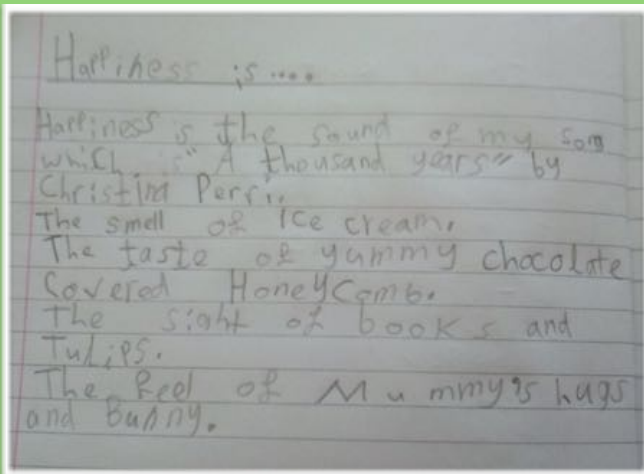 Happiness is....
Happiness is the sound of my song
which is "A thousand years" by
Christina Perri.
The smell of ice cream.
The taste of yummy chocolate
Covered HoneyComb.
The sight of books and
Tulips.
The feel of Mummy's hugs
and Bunny.